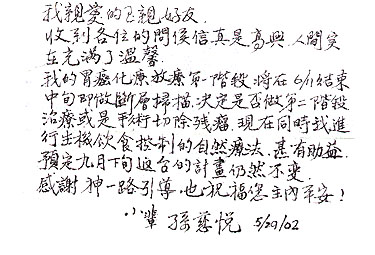 我親愛的至親好友
收到各位的問候信真是高興 人間實
在充滿了溫馨
我的胃癌化療放療第一階段將在6/11結束
中旬即做斷層掃描.決定是否做第二階段
治療或是手術切除殘瘤.現在同時我進
行生機飲食控制的自然療法.甚有助益.
預定九月下旬返台的計畫仍然不變.
感謝神一路引導也祝福您主內平安!
小輩 孫慈悅 5/29/02